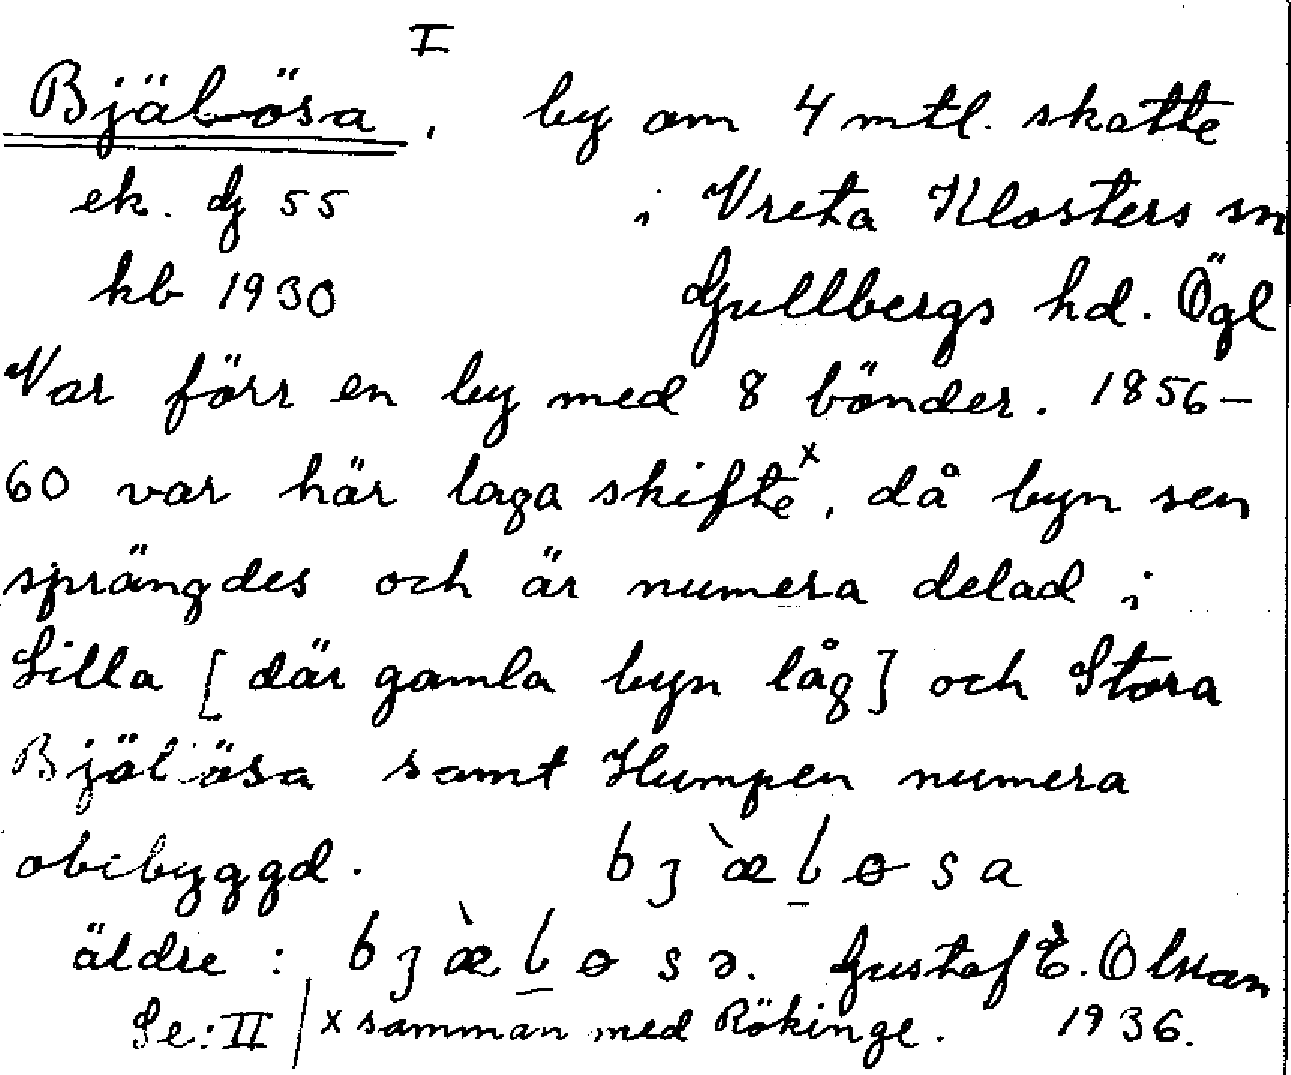 I
Bjälbösa, by om 4 mtl. skatte
ek. dg 55 i Vreta Klosters sn
kb 1930 Gullbergs hd. Ögl
Var förr en by med 8 bönder. 1856-
60 var här laga skifte x, då byn sen
sprängdes och är numera delad i
Lilla [där gamla byn låg] och Stora
Bjälbösa samt Humpen numera
obebyggd. bjæ̀bɵsa
äldre: bjæ̀bɵsə. Gustaf E. Olsson
Se: II / x samman med Rökinge. 1936.